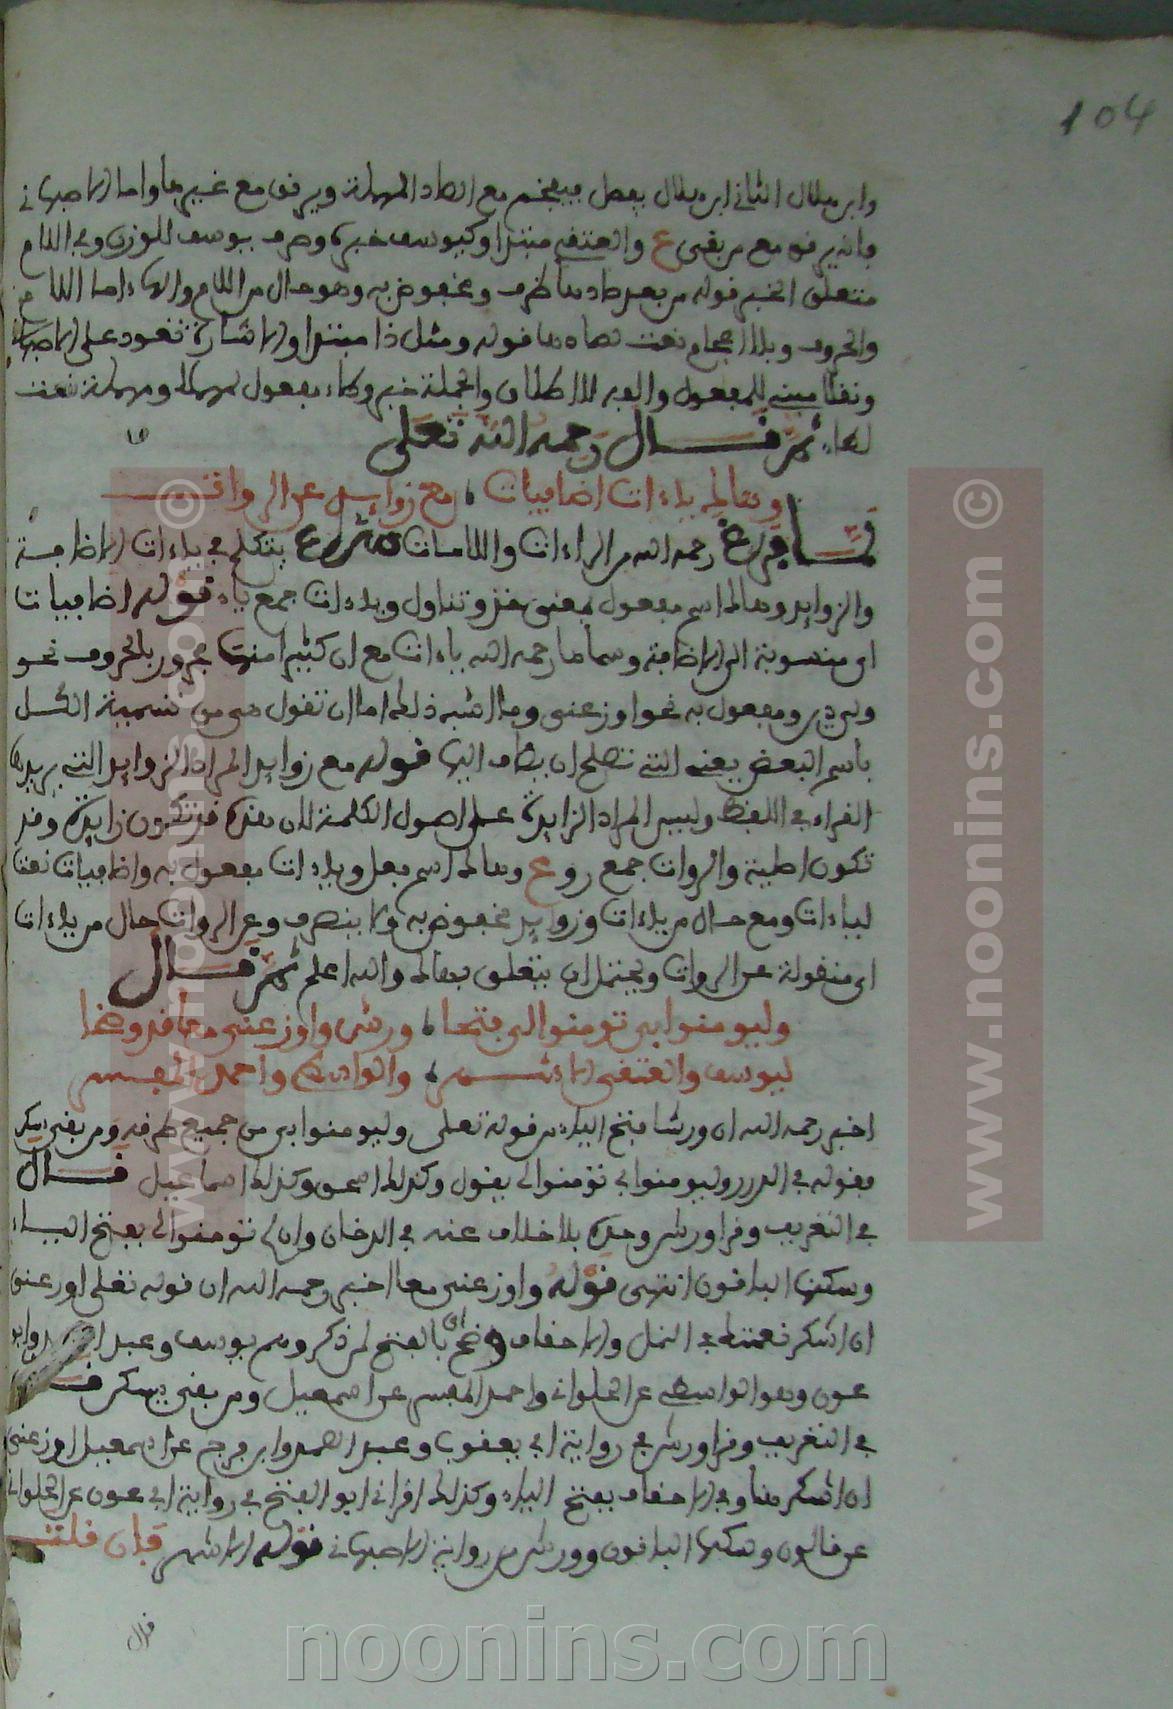 104
وابن هلال الثاني ابن هلال يفصل فيفخم مع الصاد المهملة ويرقق مع غيرها واما الاصبهاني
فانه يرقق مع من بقى ع والعتقي مبتدا وكيوسف خبره وصرف يوسف للوزن وفي اللام
متعلق الخبر قوله من بعد طاء ها ظرف ومخفوض به وهو حال من اللام والهاء اما اللام
والحروف وبالاعجام نعت لطاء ها قوله ومثل ذا مبتدا والاشارة تعود على الاصبهاني
ونقلا مبني للمفعول والفه للاطلاق والجملة خبر وطاء مفعول لمهمل ومهملة نعت
لطاء ثم قال رحمه الله تعلى
وهاك ياءات اضافيات مع زوايد عن الرواة
لما فرغ رحمه الله من الراءات واللامات شرع يتكلم في ياءات الاضافة
والزوايد وهاك اسم مفعول بمعنى خذ وتناول وياءات جمع ياء قوله اضافيات
اي منسوبة الى الاضافة وسماها رحمه الله ياءات مع ان كثيرا منها مجرور بالحروف نحو
ولي دين ومفعول به نحو اوزعني وما اشبه ذلك اما ان تقول هي من تسمية الكل
باسم البعض يعني التي تصلح ان يضاف اليها قوله مع زوايد المراد الزوايد التي يزيدها
القراء في اللفظ وليس المراد الزايدة على اصول الكلمة لان هذه قد تكون زايدة وقد
تكون اصلية والرواة جمع رو ع وهاك اسم فعل وياءات مفعول به واضافيات نعت
لياءات ومع حال من ياءات وزوايد مخفوض به ولا ينصرف وعن الرواة حال من ياءات
اي منقولة عن الرواة ويحتمل ان يتعلق بهاك والله اعلم ثم قال
وليومنوا بي تومنوا لي فتحا ورش واوزعني معا قد وضحا
ليوسف والعتقي الاشهر والواسطي واحمد المفسر
اخبر رحمه الله ان ورشا فتح الياء من قوله تعلى وليومنوا بي من جميع طرقه ومن بقى يسكن
فقوله في الدرر وليومنوا بي تؤمنوا لي يقول وكذلك اسحق وكذلك اسماعيل قال
في التعريف وقرا ورش وحده بلا خلاف عنه في الدخان وان لم تؤمنوا لي بفتح الياء
وسكنها الباقون انتهى قوله واوزعني معا اخبر رحمه الله ان قوله تعلى اوزعني
ان اشكر نعمتك في النمل والاحقاف وضح اي بالفتح لمن ذكر وهم يوسف وعبد الصمد وابو
عون وهو الواسطي عن الحلواني واحمد المفسر عن اسمعيل ومن بقى يسكن قال
في التعريف وقرا ورش في رواية ابي يعقوب وعبد الصمد وابن فرح عن اسمعيل اوزعني
ان اشكر هنا وفي الاحقاف بفتح الياء وكذلك اقراني ابو الفتح في رواية ابي عون عن الحلواني
عن قالون وسكنها الباقون وورش من رواية الاصبهاني قوله الاشهر فإن قلت
قال
www.noonins.com ©
www.noonins.com ©
noonins.com